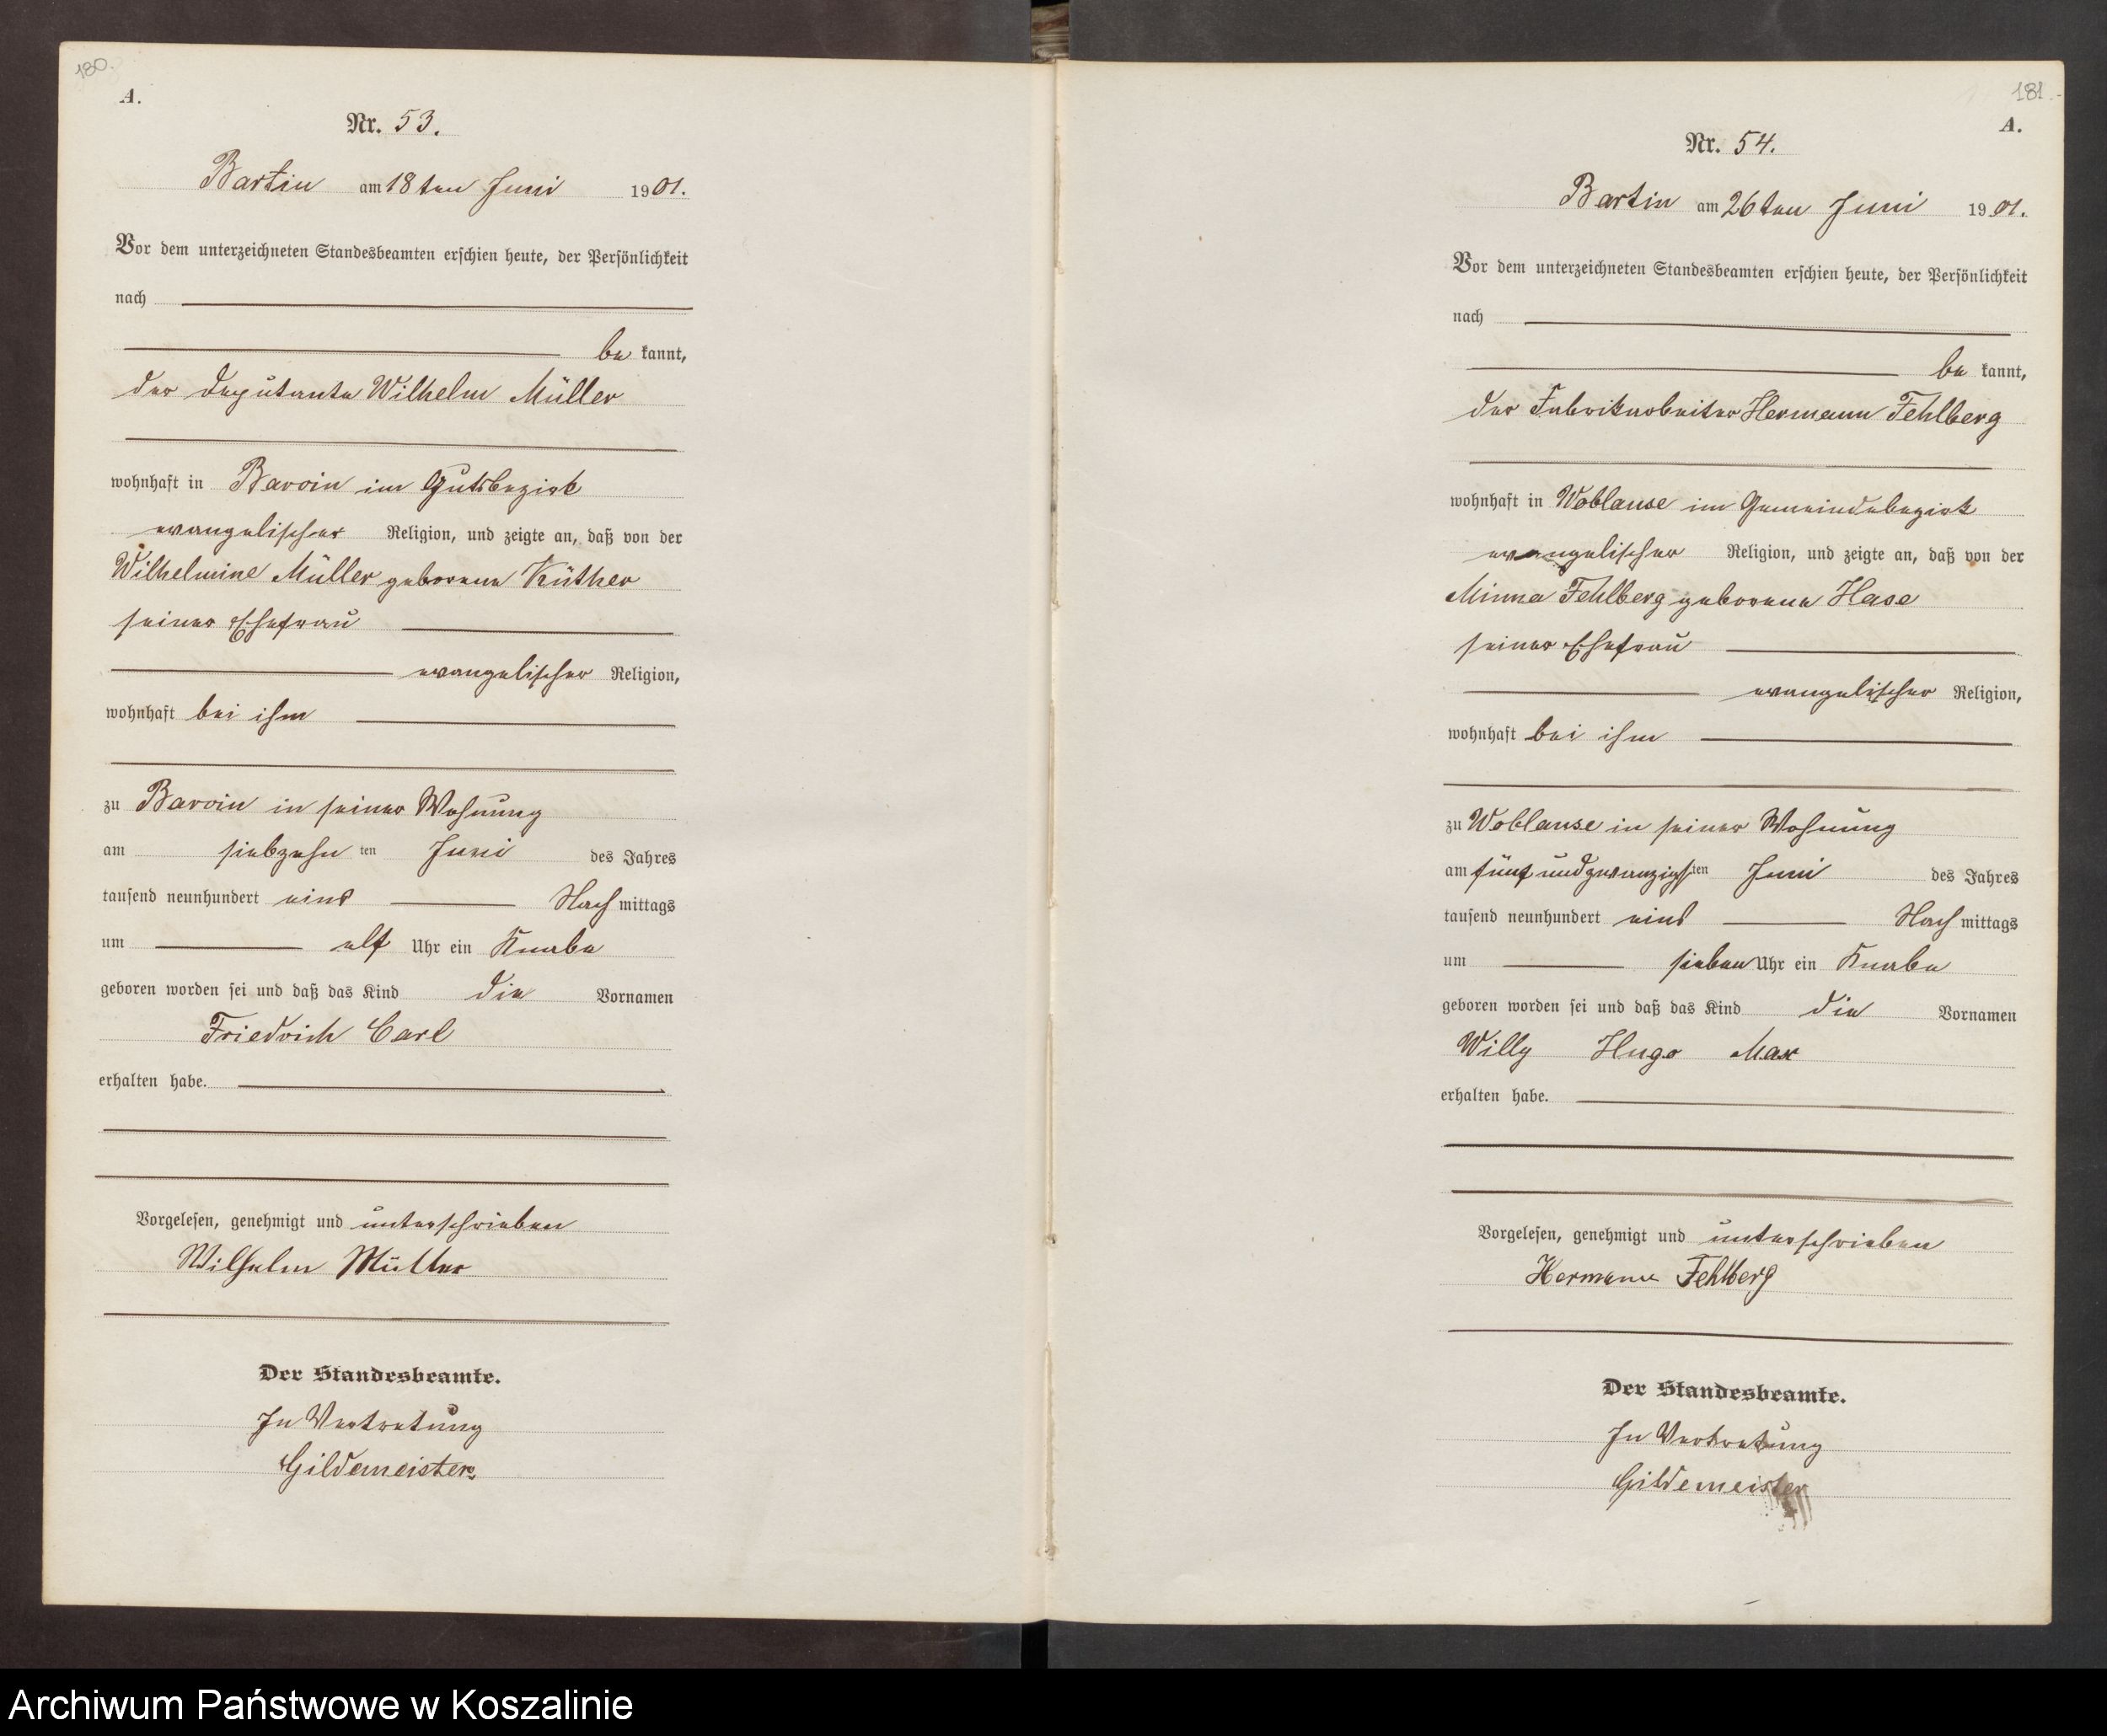 180.
A.
Nr. 53.
Bartin am 18ten Juni 1901.
Vor dem unterzeichneten Standesbeamten erschien heute, der Persönlichkeit
nach
be kannt,
der Deputante Wilhelm Müller
wohnhaft in Barvin im Gutsbezirk
evangelischer Religion, und zeigte an, daß von der
Wilhelmine Müller geborene Küther
seiner Ehefrau
evangelischer Religion,
wohnhaft bei ihm
zu Barvin in seiner Wohnung
am siebzehn ten Juni des Jahres
tausend neunhundert eins Nachmittags
um elf Uhr ein Knabe
geboren worden sei und daß das Kind die Vornamen
Friedrich Carl
erhalten habe.
Vorgelesen, genehmigt und unterschrieben
Wilhelm Müller
Der Standesbeamte.
In Vertretung
Gildemeister.
181.
A.
Nr. 54.
Bartin am 26ten Juni 1901.
Vor dem unterzeichneten Standesbeamten erschien heute, der Persönlichkeit
nach
be kannt,
der Fabrikarbeiter Hermann Fehlberg
wohnhaft in Woblanse im Gemeindebezirk
evangelischer Religion, und zeigte an, daß von der
Minna Fehlberg geborene Hase
seiner Ehefrau
evangelischer Religion,
wohnhaft bei ihm
zu Woblanse in seiner Wohnung
am fünfundzwanzigsten Juni des Jahres
tausend neunhundert eins Nachmittags
um sieben Uhr ein Knabe
geboren worden sei und daß das Kind die Vornamen
Willy Hugo Max
erhalten habe.
Vorgelesen, genehmigt und unterschrieben
Hermann Fehlberg
Der Standesbeamte.
In Vertretung
Gildemeister
Archiwum Państwowe w Koszalinie